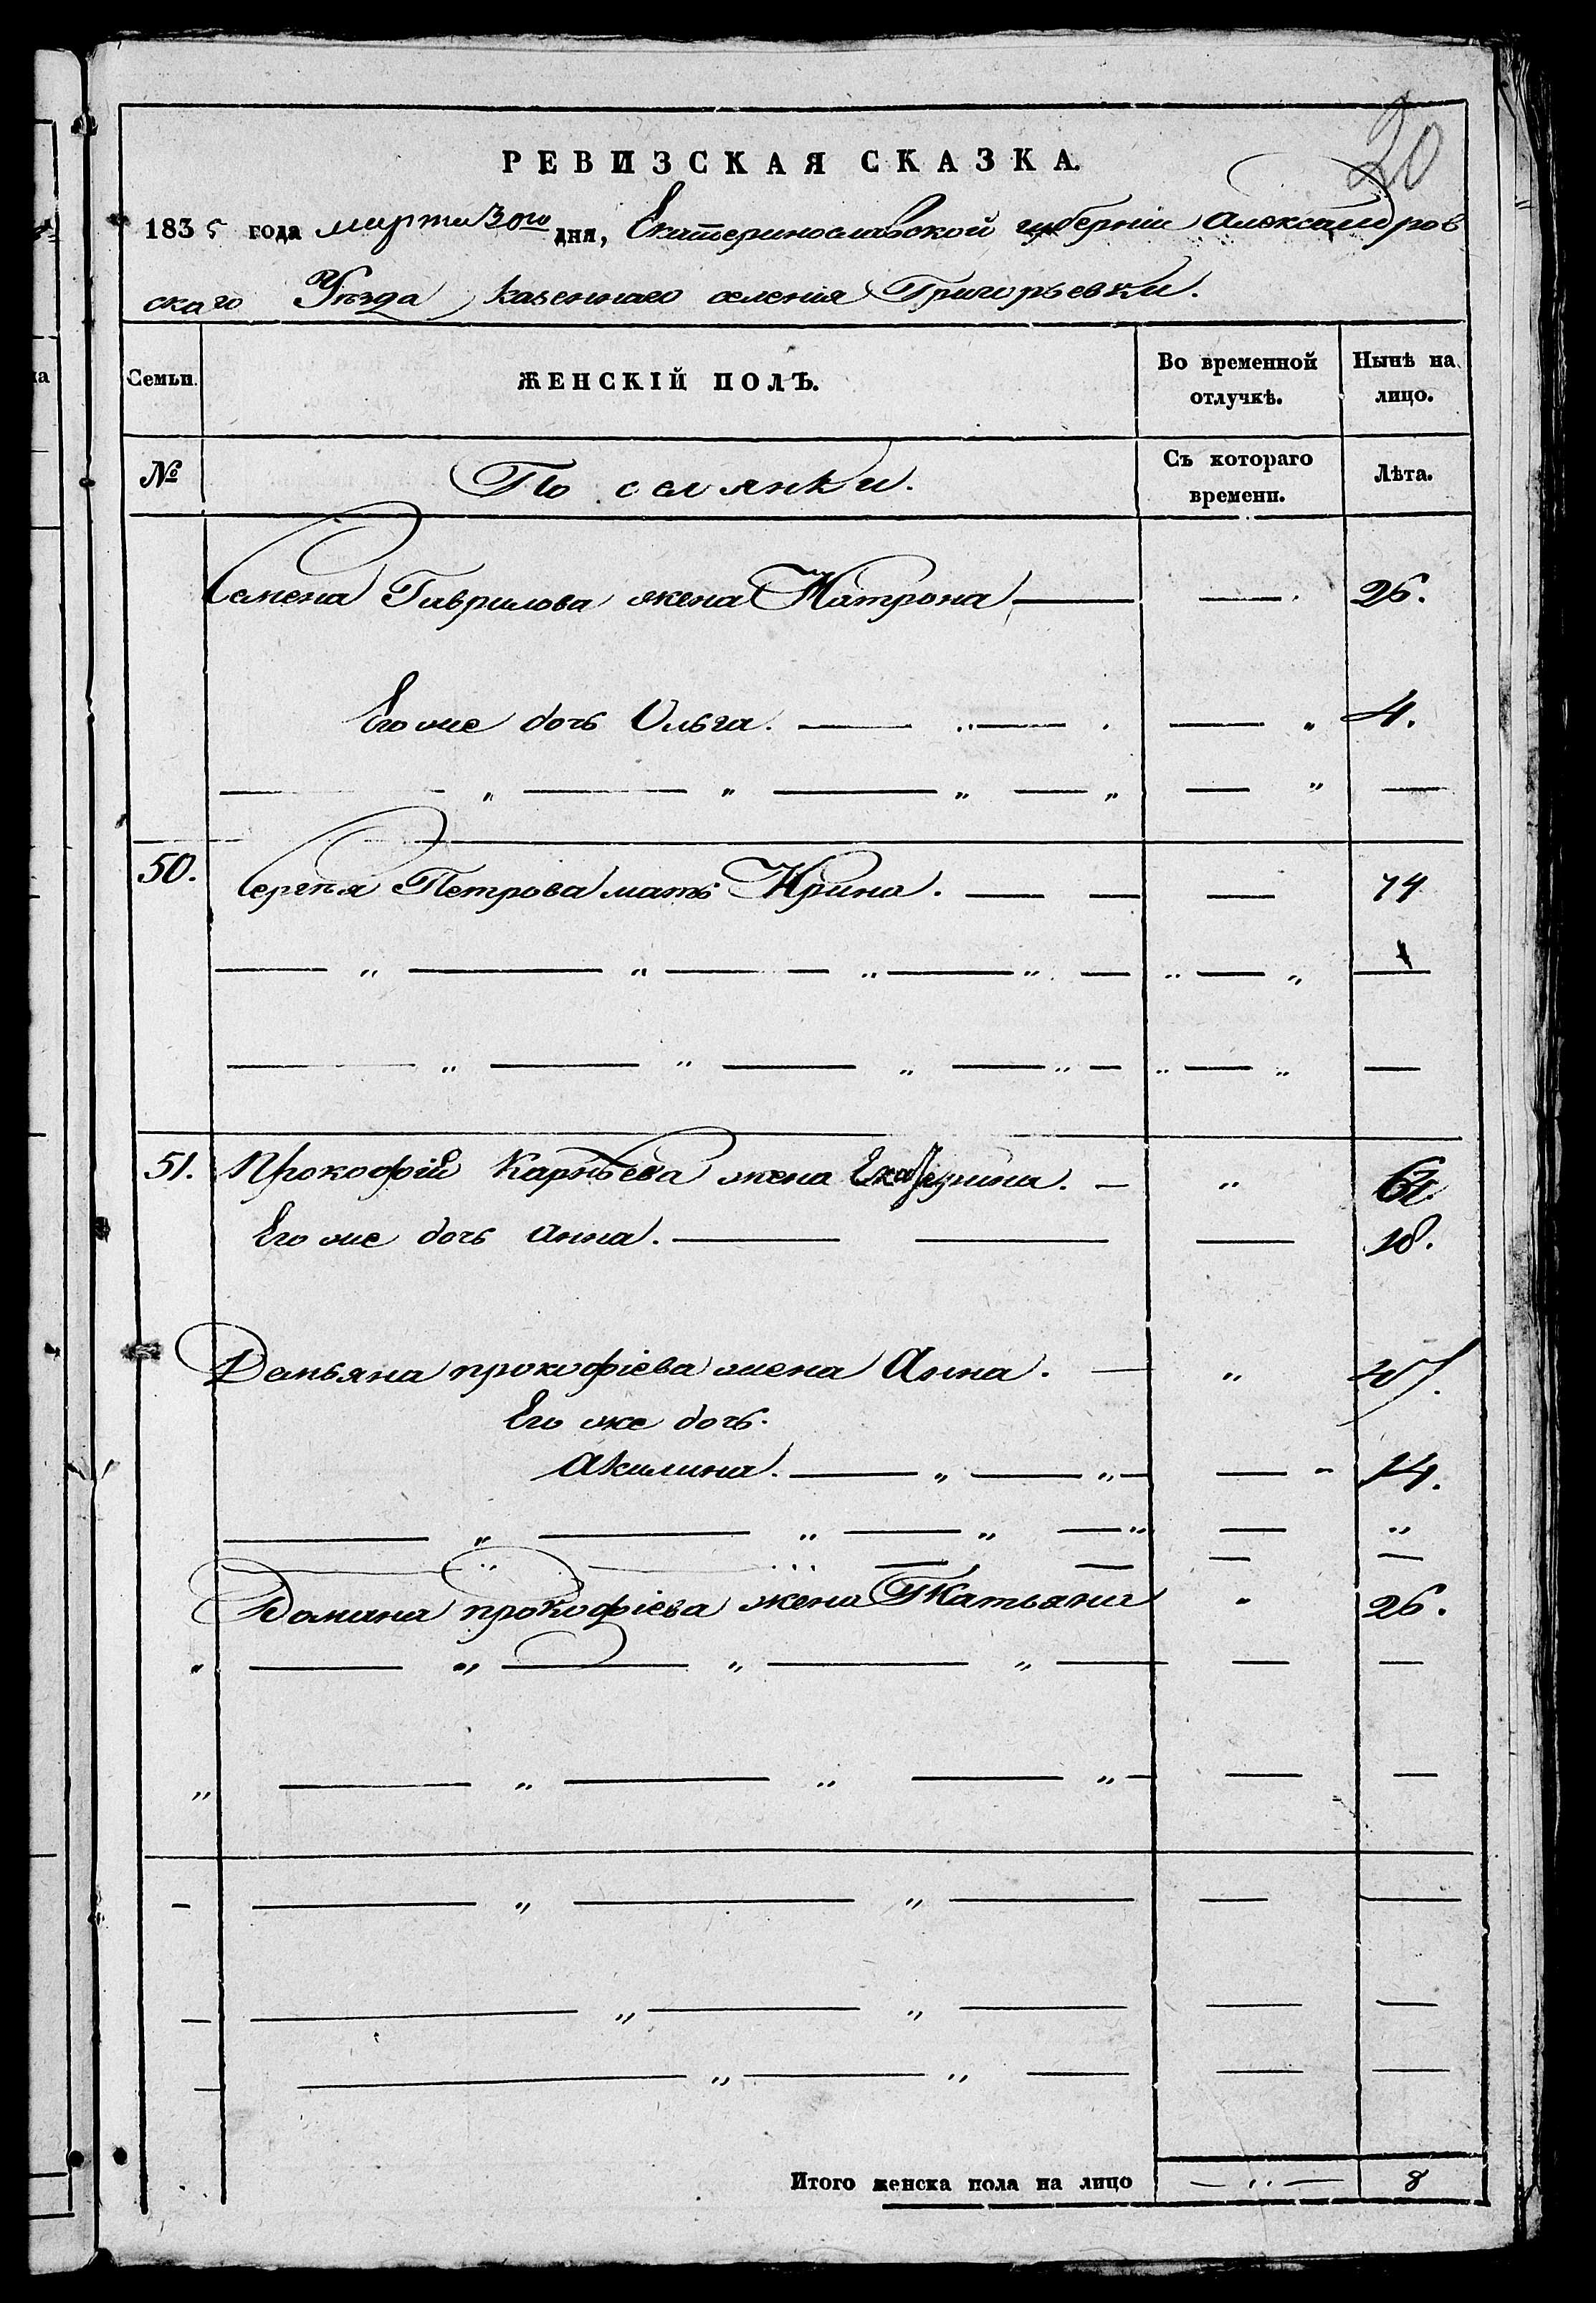 20
РЕВИЗСКАЯ СКАЗКА.
1835 года марта 30го дня, Екатеринославской губерніи Александров
скаго Уѣзда казеннаго селенія Григорьевки.
Семьи. ЖЕНСКІЙ ПОЛЪ. Во временной отлучкѣ. Нынѣ на лицо.
№ Поселянки. Съ котораго времени. Лѣта.
Семена Гаврилова жена Матрона 26.
Его же дочь Ольга. 4.
50. Сергѣя Петрова мать Ирина. 74
51. Прокофій Карнѣева жена Екатерина.
Его же дочь Анна. 18.
Демьяна прокофіева жена Анна.
Его же дочь.
Акилина. 14.
Домана прокофіева жена Татьяна 26.
Итого женска пола на лицо 8
на